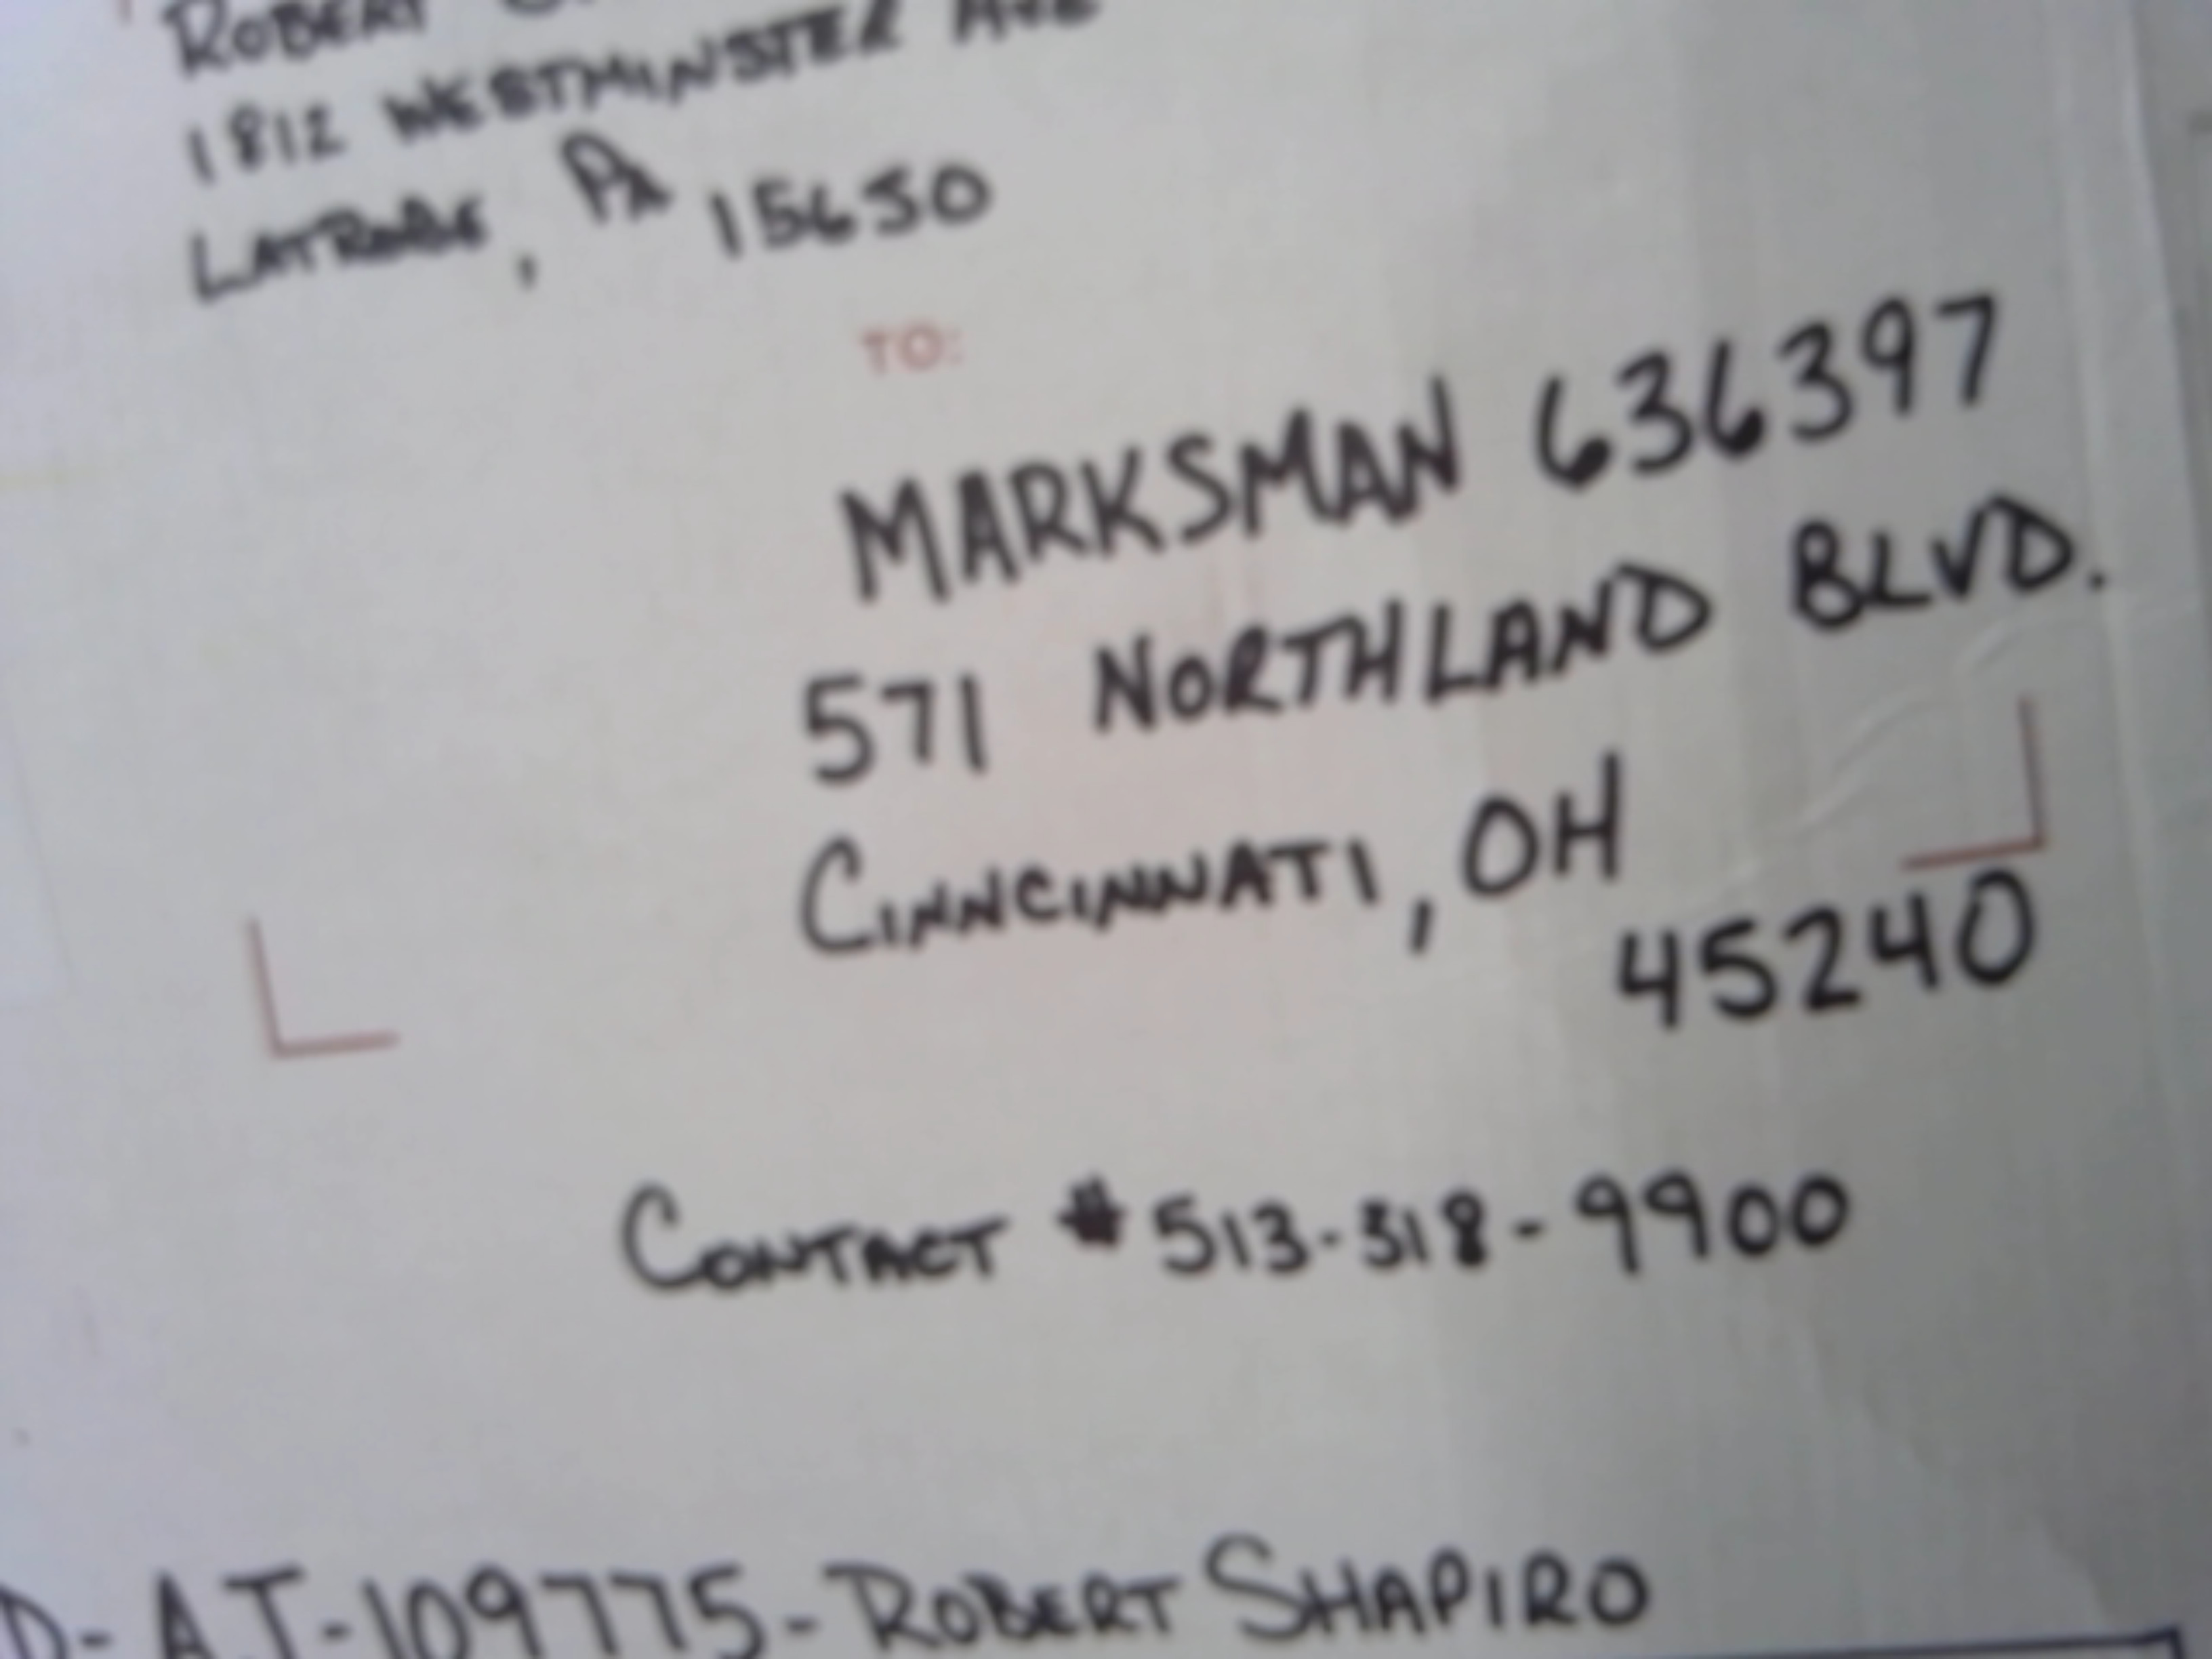 ROBERT
1812 WESTMINSTER AVE
LATROBE, PA 15650
TO:
MARKSMAN 636397
571 NORTHLAND BLVD.
CINNCINNATI, OH
45240
CONTACT # 513-318-9900
D-AJ-109775-ROBERT SHAPIRO